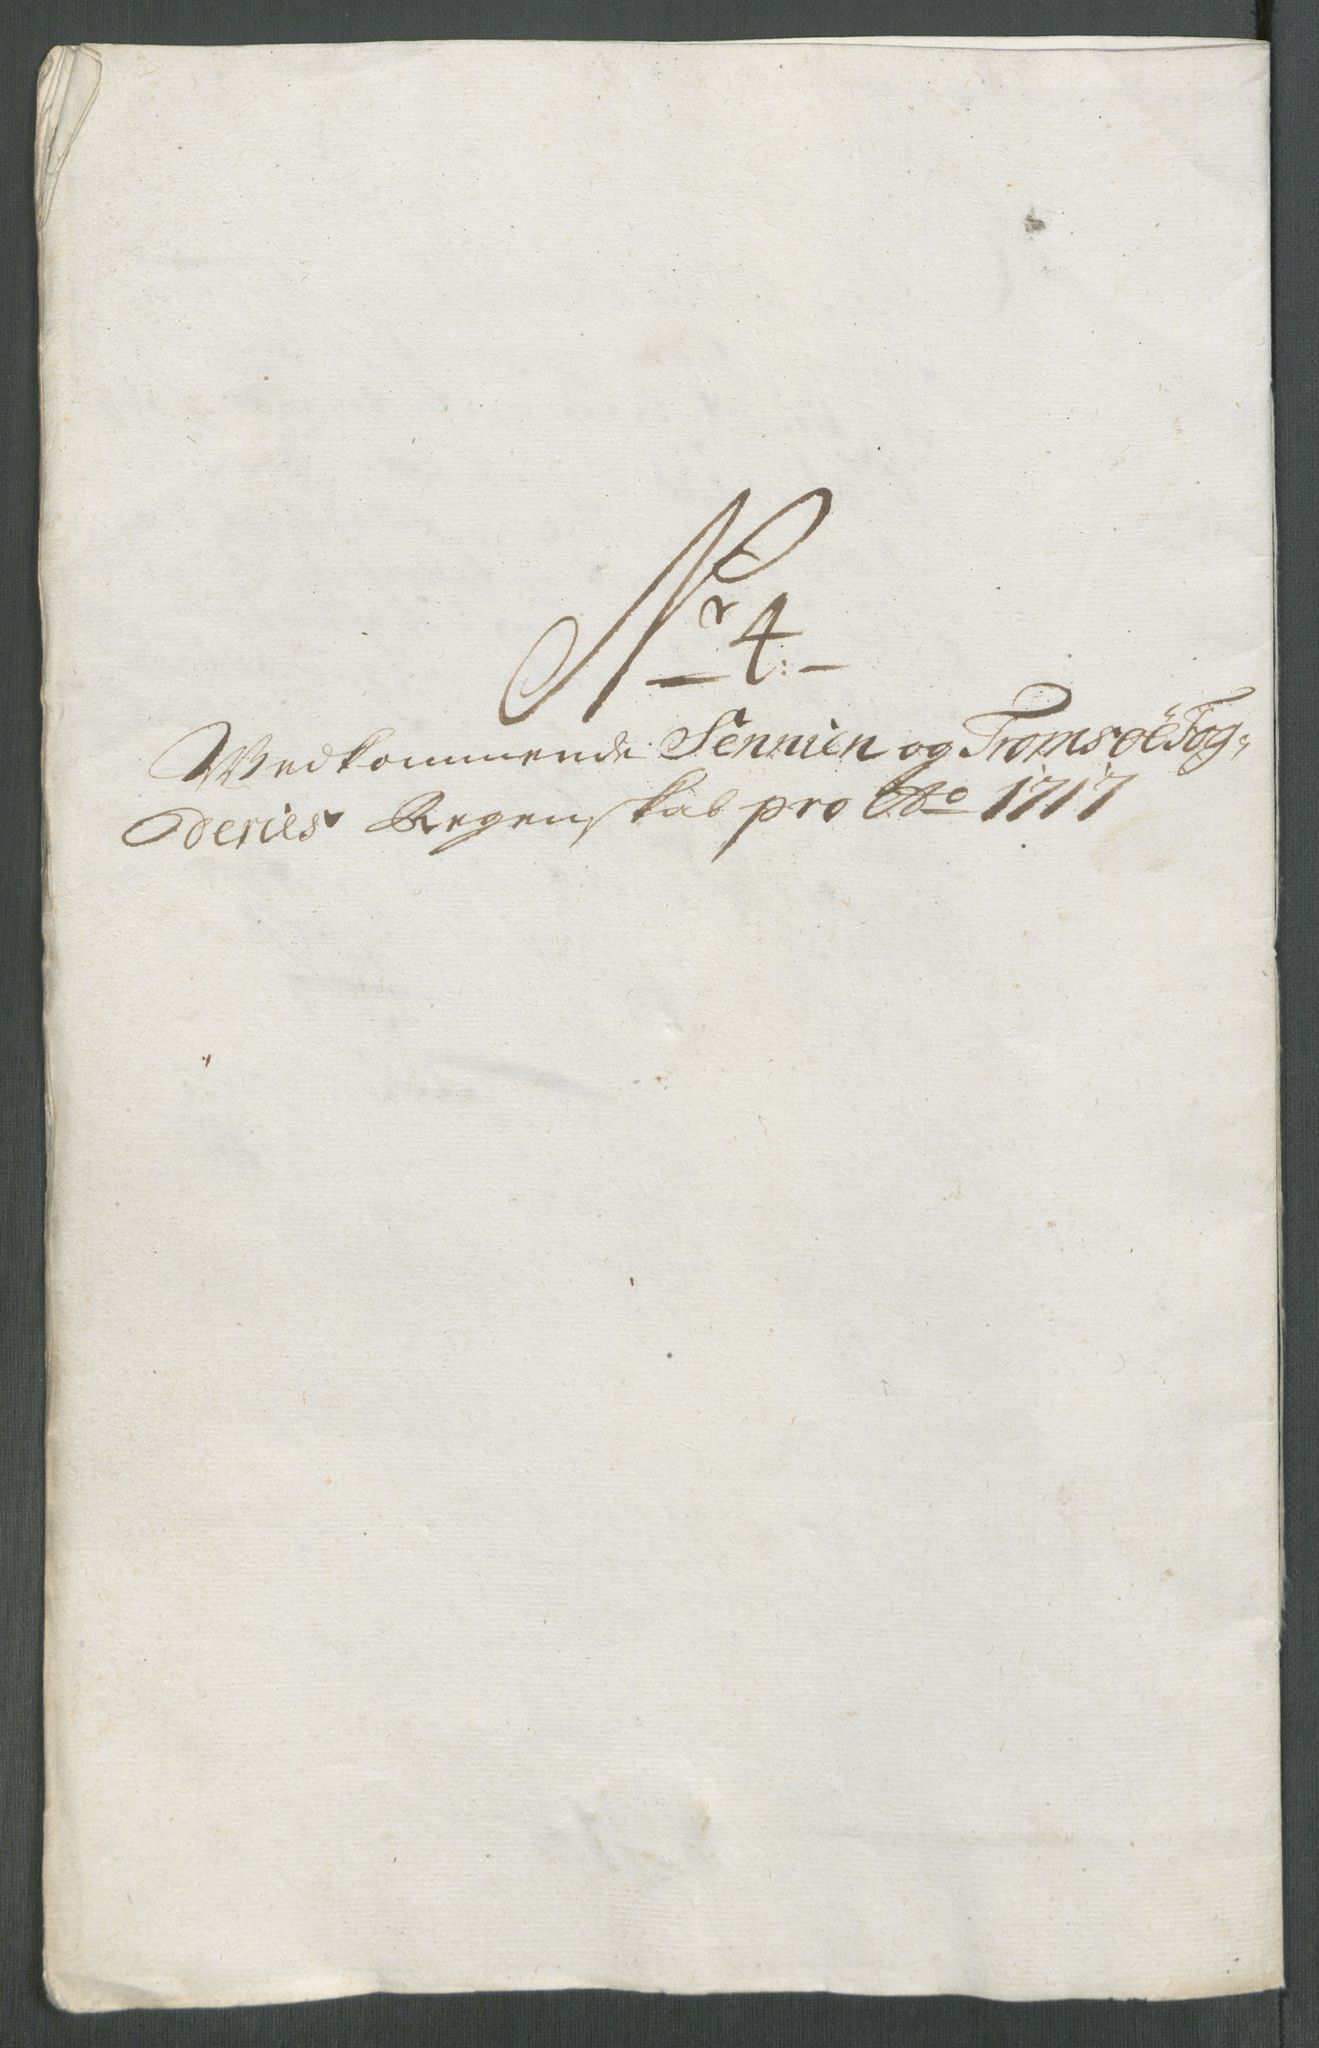 Nr 4:
Vedkommende Sennien og Tromsöe Fog-
deries Regenskab pro Ao 1717